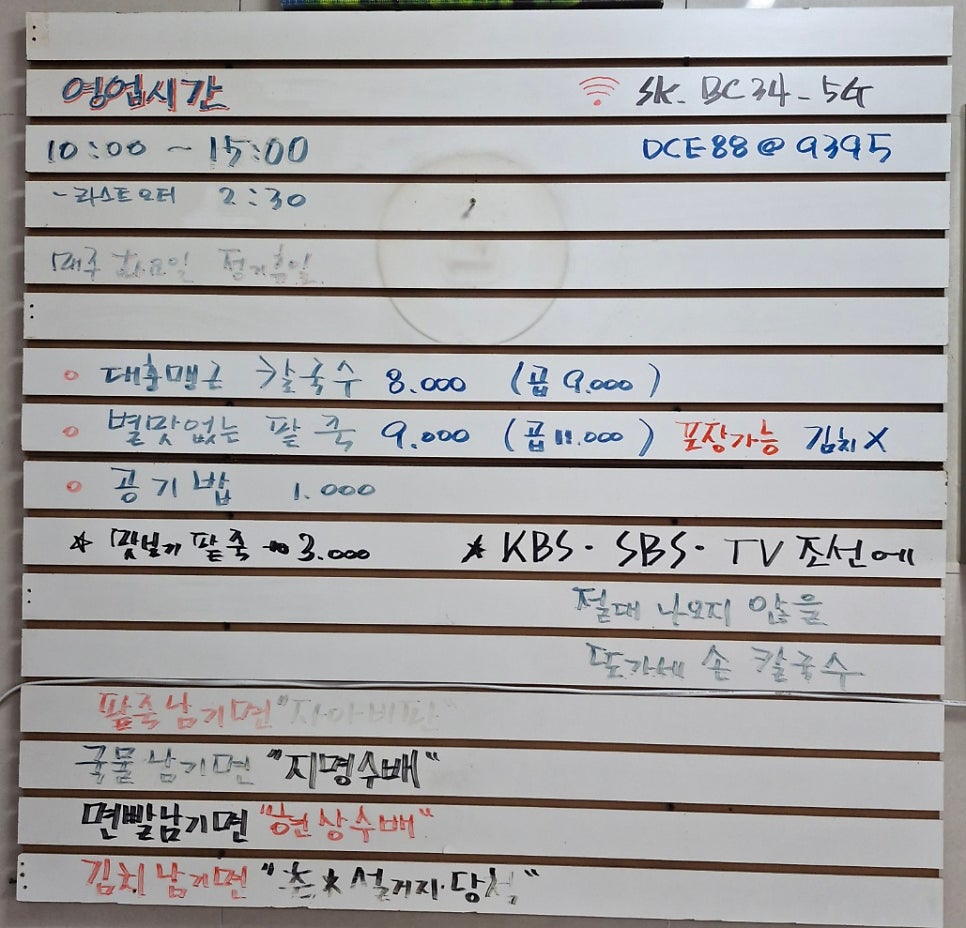 영업시간 SK_BC34_5G
10:00 ~ 15:00 DCE88@9395
-라스트오더 2:30
매주 화요일 정기휴일
대충맹근 칼국수 8.000 (곱 9.000)
별맛없는 팥죽 9.000 (곱 11.000) 포장가능 김치X
공기밥 1.000
☆ 맛보기 팥죽 → 3.000 ★ KBS· SBS· TV조선에
절대 나오지 않을
또가세 손 칼국수
팥죽남기면 "지아비파"
국물남기면 "지명수배"
면빨남기면 "현상수배"
김치남기면 "초★설거지·당첨"